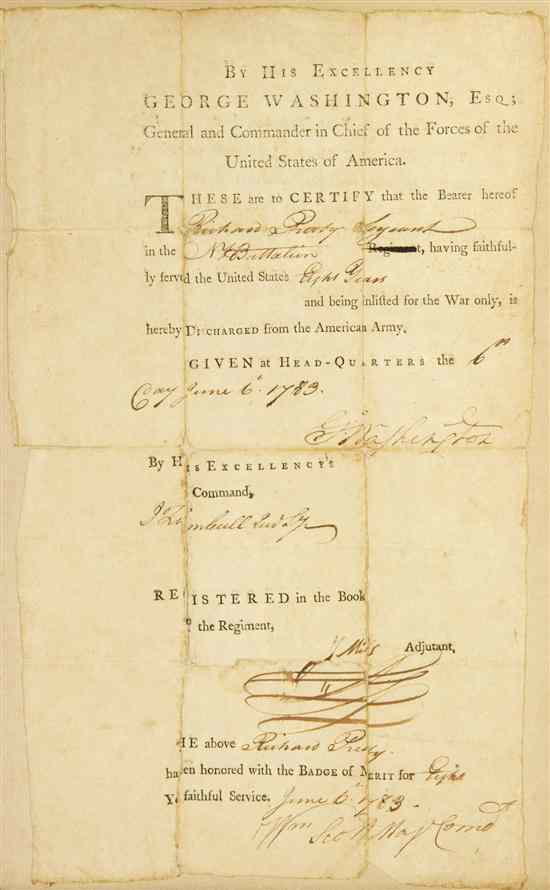 BY HIS EXCELLENCY
GEORGE WASHINGTON, ESQ;
General and Commander in Chief of the Forces of the
United States of America.
THESE are to CERTIFY that the Bearer hereof
Richard Serjeant
in the Battalion Regiment, having faithful-
ly served the United States Eight Years
and being inlisted for the War only, is
hereby DISCHARGED from the American Army.
GIVEN at HEAD-QUARTERS the 6th
Day June 6th 1783.
G Washington
By HIS EXCELLENCY'S
Command,
J Trumbull
REGISTERED in the Book
the Regiment,
Adjutant,
HE above Richard
ha en honored with the BADGE of MERIT for Eight
Y faithful Service. June 6th 1783.
Wm Scott Maj